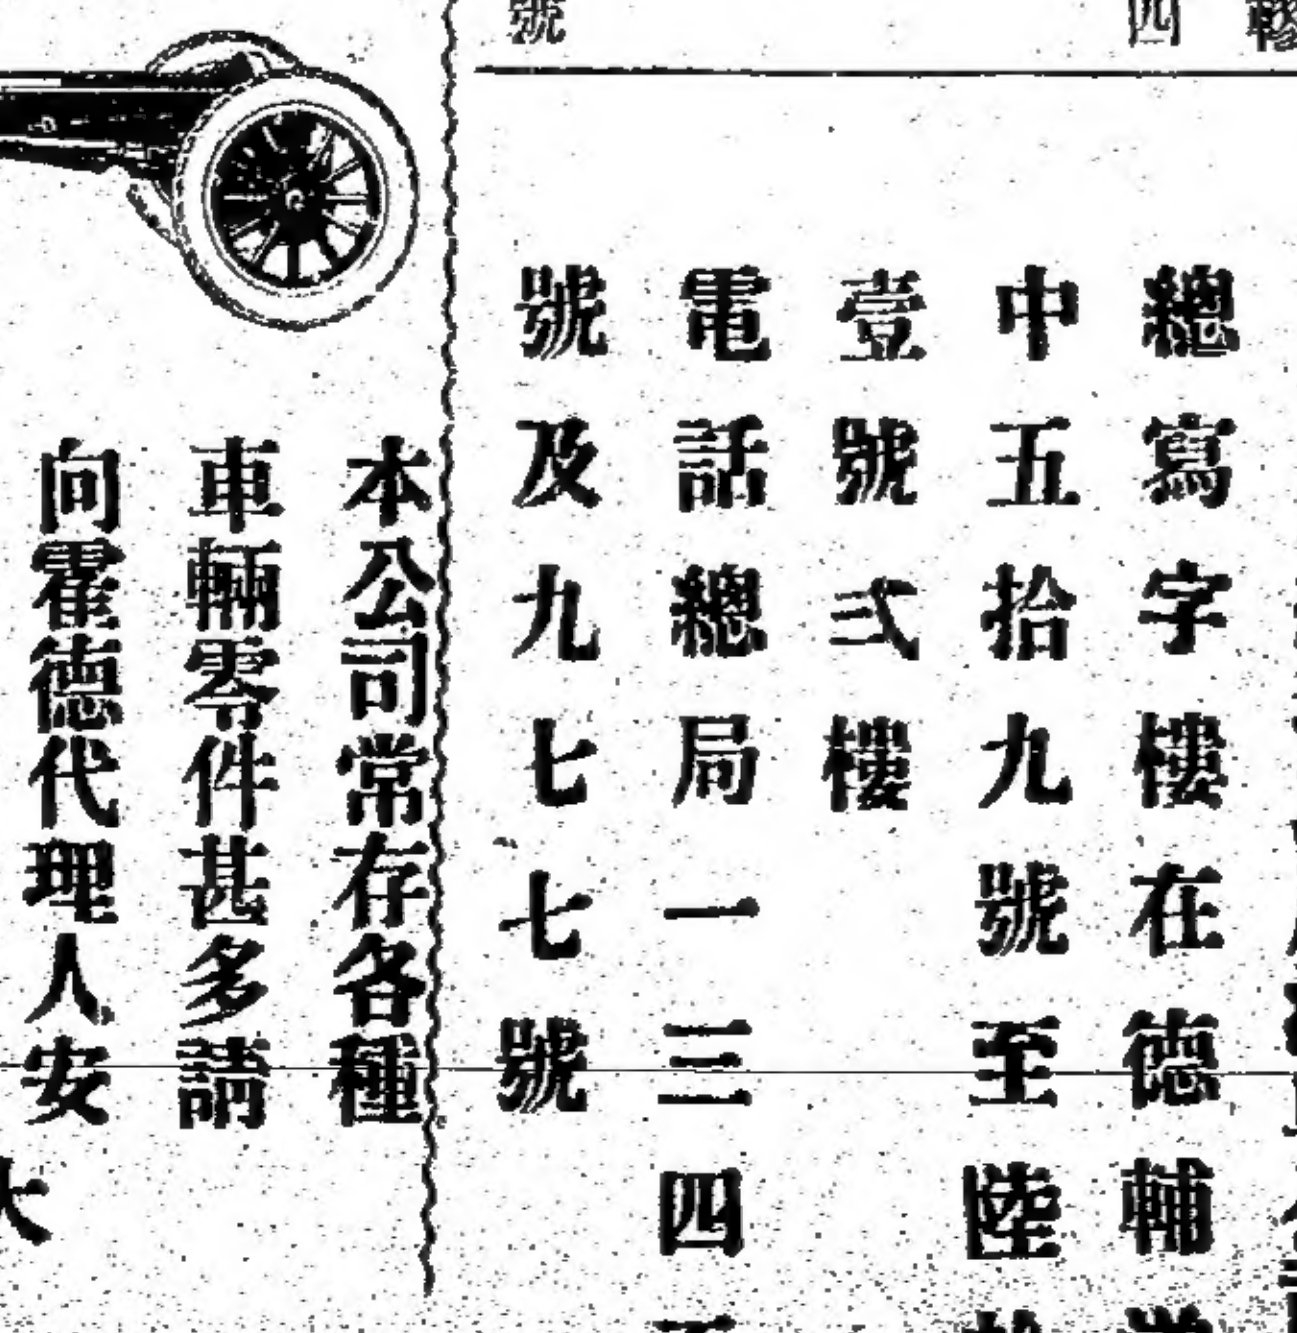 四
號
總寫字樓在德輔
中五拾九號至陸
壹號弍樓
電話總局一三四
號及九七七號
本公司常存各種
車輛零件甚多請
向霍德代理人安
大